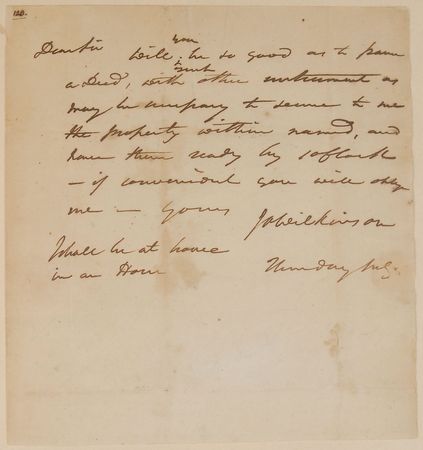 120.
you
Dear Sir Will be so good as to
a Deed, with such other instrument as
may be necessary to secure to me
the property within named, and
have them ready by
— if convenient you will oblige
me — yours
Ja Wilkinson
I shall be at home
in an Hour
Thursday